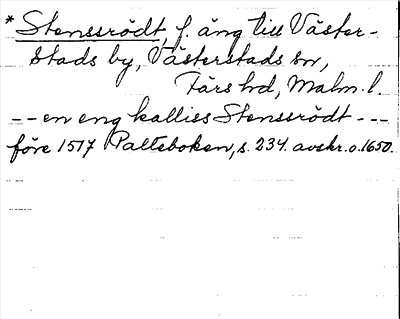 * Stenssrödt, f. äng till Väster-
stads by, Västerstads sn,
Färs hd, Malm. l.
-- en eng kalliss Stenssrödt ---
före 1517 Palteboken, s. 234. avskr. o. 1650.